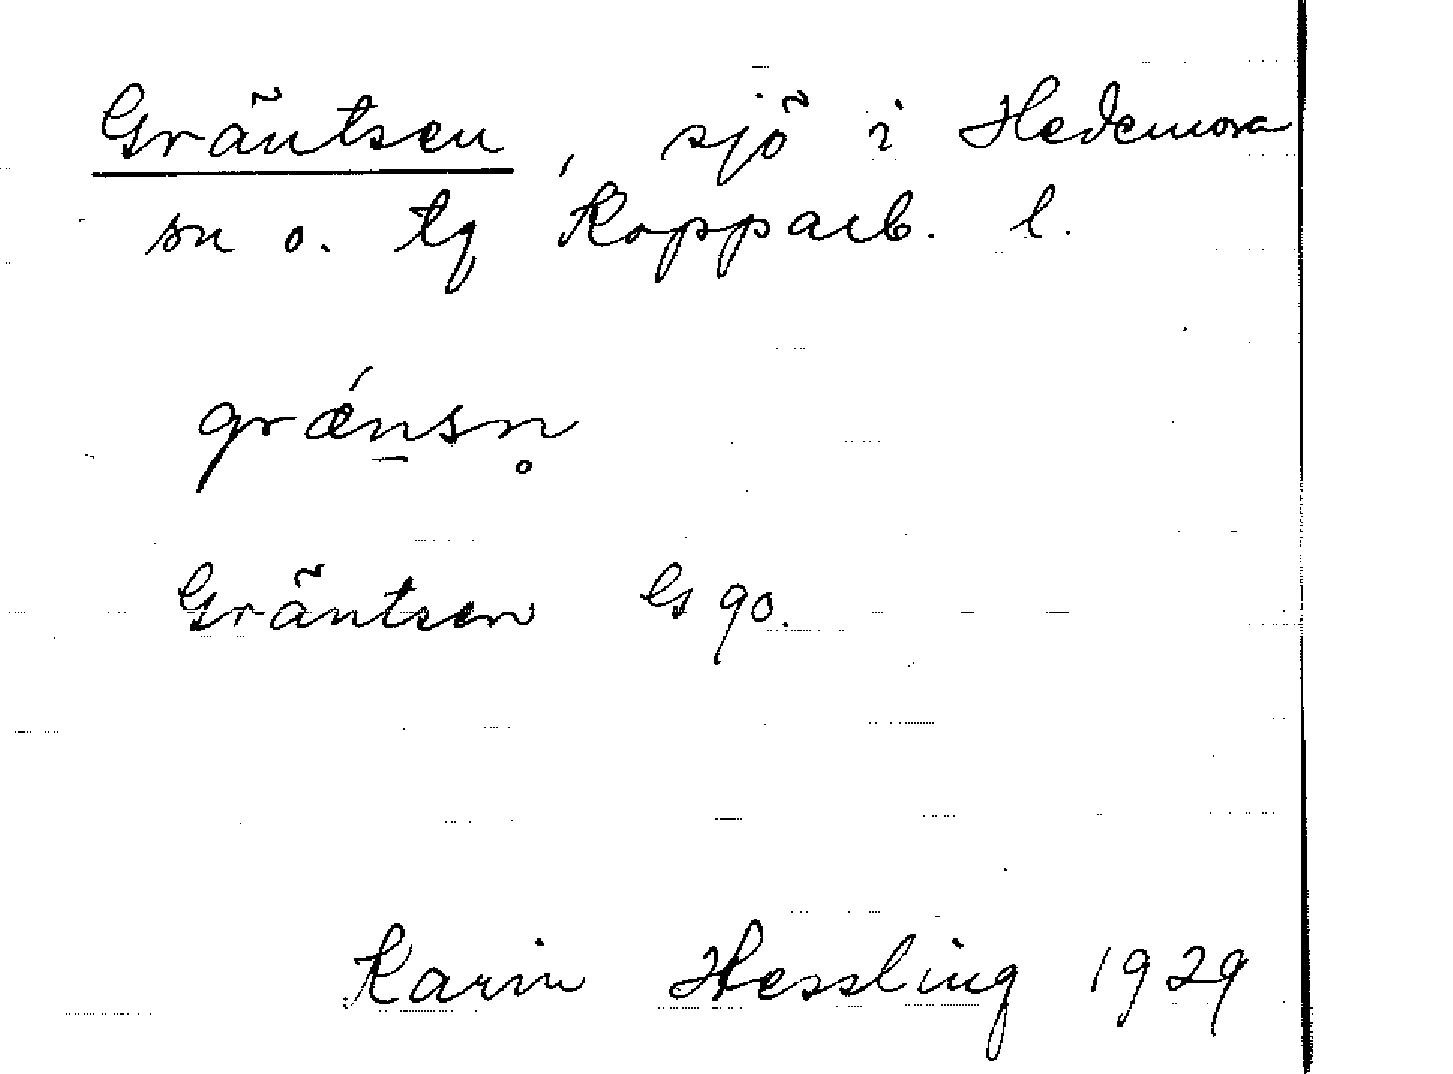 Gräntsen, sjö i Hedemora
sn o. tg Kopparb. l.
grǽn̠sn̥
Gräntsen Gs 90.
Karin Hessling 1929